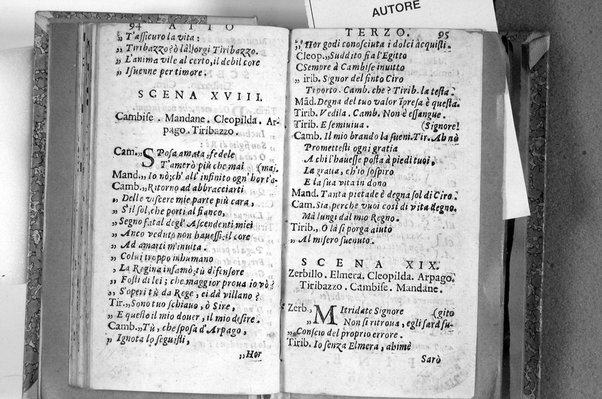 AUTORE
94 ATTO
„ T'assicuro la vita:
„ Tiribazzo? ò là! sorgi Tiribazzo.
„ L'anima vile al certo, il debil core
„ Isuenne per timore.
SCENA XVIII.
Cambise. Mandane. Cleopilda. Ar-
pago. Tiribazzo.
Cam. „ SPosa amata, fedele
„ T'amerò più che mai (mai.
Mand. „ Io nõ, ch' all' infinito ogn' hor t'a-
Camb. „ Ritorno ad abbracciarti
„ Delle viscere mie parte più cara,
„ S'il sol, che porti al fianco,
„ Segno fatal degl' Ascendenti miei
„ Anco veduto non hauessi, il core
„ Ad amarti m'inuita.
„ Colui troppo inhumano
„ La Regina insamò, tù difensore
„ Fosti di lei: che maggior proua io vò?
„ S'operi tù da Rege, ei dà villano?
Tir. „ Sono tuo schiauo, ò Sire,
„ E questo il mio douer, il mio desire.
Camb. „ Tù, che sposa d'Arpago,
„ Ignota lo seguisti,
„ Hor
TERZO. 95
„ Hor godi conosciuta i dolci acquisti.
Cleop. „ Suddito fia l'Egitto
„ Sempre à Cambise inuitto
Tirib. Signor del finto Ciro
Ti porto. Camb. che? Tirib. la testa.
Mãd. Degna del tuo valor ĩpresa è questa.
Tirib. Vedila. Camb. Non è essangue.
Tirib. E semiuiua. (Signore!
Camb. Il mio brando la sueni. Tir. Ah nò
Promettesti ogni gratia
A chi l'hauesse posta à piedi tuoi,
La gratia, ch'io sospiro
E la sua vita in dono
Mand. Tanta pietade è degna sol di Ciro.
Cam. Sia, perche vuoi così di vita degno.
Mà lungi dal mio Regno.
Tirib. „ O là si porga aiuto
„ Al misero suenuto.
SCENA XIX.
Zerbillo. Elmera. Cleopilda. Arpago.
Tiribazzo. Cambise. Mandane.
Zerb. „ MItridate Signore (gito
„ Non si ritroua, egli sarà fu-
„ Conscio del proprio errore.
Tirib. Io senza Elmera, ahimè
Sarò